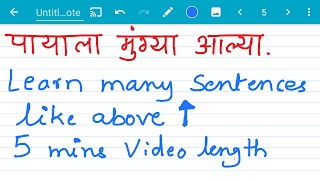 Untitl...ote
5
पायाला मुंग्या आल्या.
Learn many Sentences
like above ↑
5 mins Video length